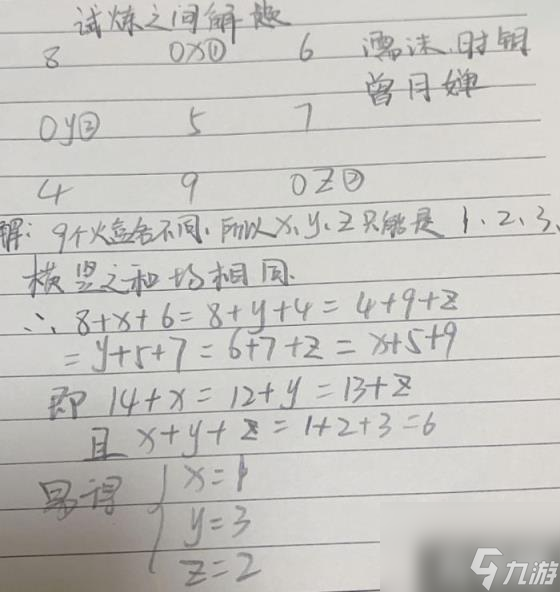 试炼之间解题
8 0X① 6 濡沫.时钥
曾月婵
0y③ 5 7
4 9 0Z②
解: 9个火盒各不同.所以X、y、Z只能是1、2、3、
横竖之和均相同.
∴ 8+x+6=8+y+4=4+9+z
=y+5+7=6+7+z=x+5+9
即 14+x=12+y=13+z
且 x+y+z=1+2+3=6
易得 x=1
y=3
z=2
九游